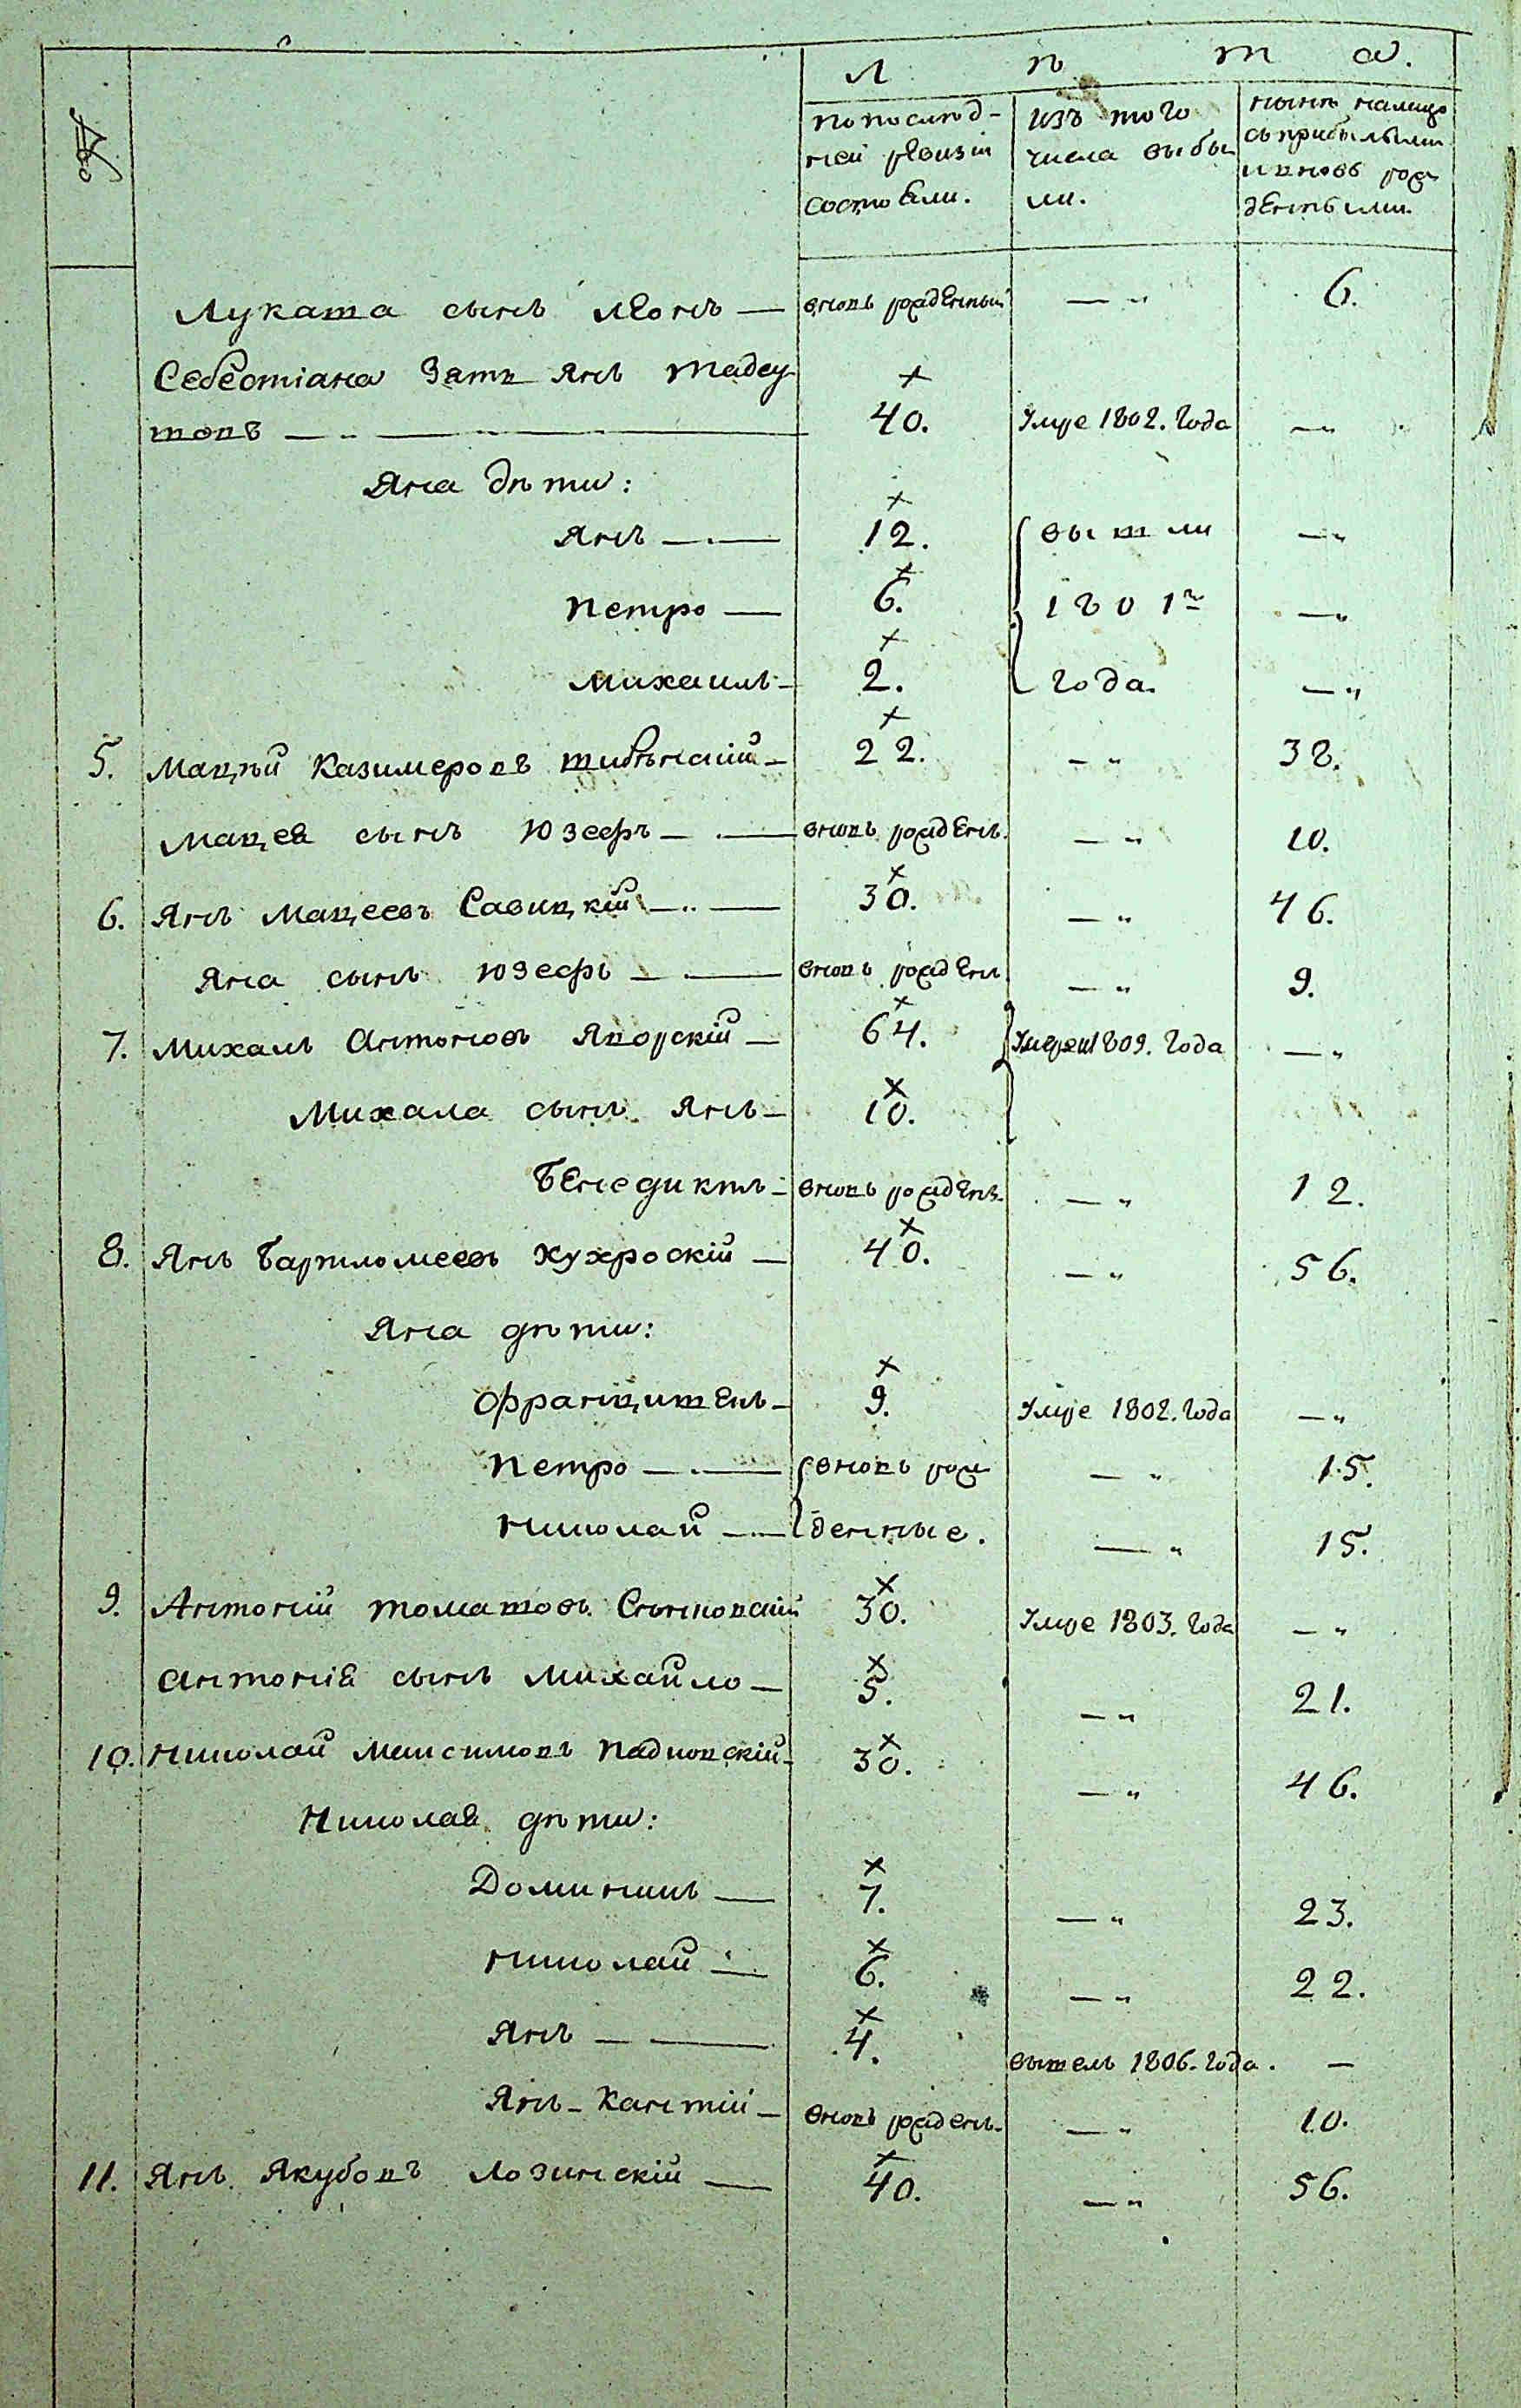 №
Л ѣ т а.
по послѣд-
ней ревизіи
состояли.
изъ того
числа выбы
ли.
нынѣ налицо
съ прибылыми
и вновь рож
денными.
Лукаша сынъ Леонъ — вновь рожденный — „ 6.
Себестіана Зять Янъ Тадеу-
шовъ — 40. Умре 1802. года — „
Яна дѣти:
Янъ — 12. вышли — „
Петро — 6. 1801го — „
Михаилъ — 2. года. — „
5. Мацѣй Казимеровъ — 22. — „ 38.
Мацея сынъ Юзефъ — вновь рожденъ. — „ 10.
6. Янъ Мацеевъ Савицкій — 30. — „ 46.
Яна сынъ Юзефъ — вновь рожден — „ 9.
7. Михалъ Антоновъ Яворскій — 64. Умерли 1809. года — „
Михала сынъ Янъ — 10.
Бенедиктъ — вновь рожденъ. — „ 12.
8. Янъ Бартломеевъ — 40. — „ 56.
Яна дѣти:
Офранцишекъ — 9. Умре 1802. года — „
Петро — вновь рож — „ 15.
Николай — денные. — „ 15.
9. Антоній Томашовъ 30. Умре 1803. года — „
Антонія сынъ Михайло — 5. — „ 21.
10. Николай Максимовъ Падковскій — 30. — „ 46.
Николая дѣти:
Доминикъ — 7. — „ 23.
Николай — 6. — „ 22.
Янъ — 4. вышелъ 1806. года. —
Янъ - Кантій — вновь рожденъ. — „ 10.
11. Янъ Якубовъ Лозинскій — 40. — „ 56.